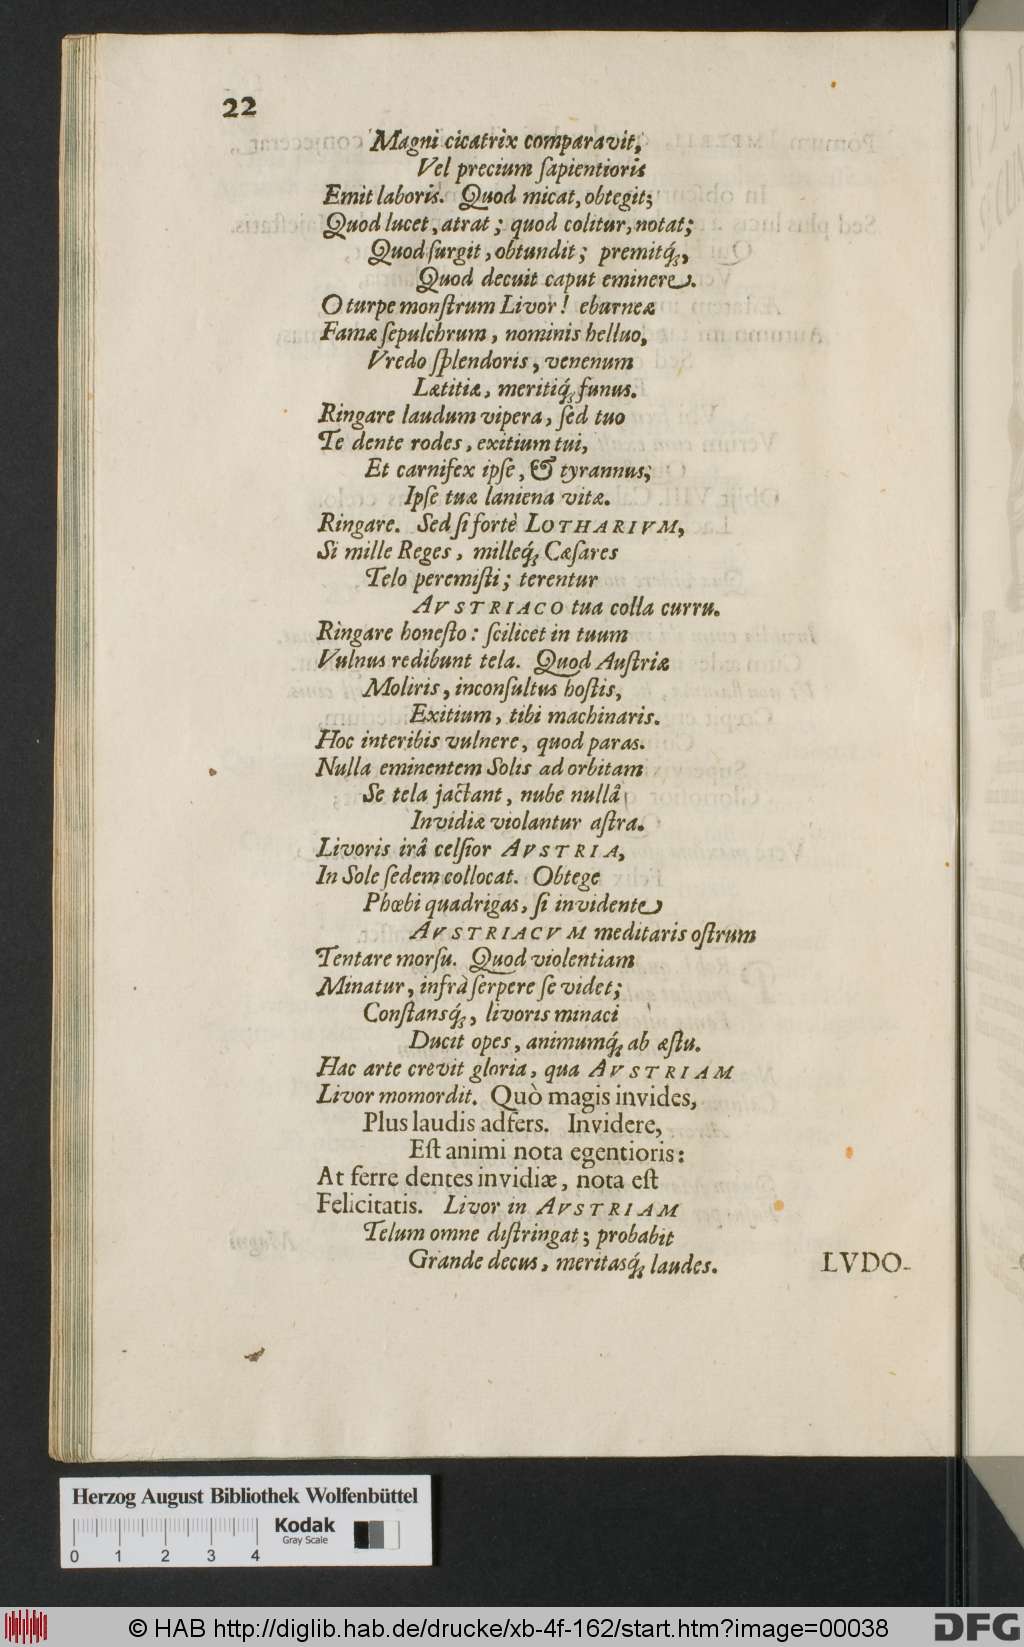 22
Magni cicatrix comparavit,
Vel precium ſapientioris
Emit laboris. Quod micat, obtegit;
Quod lucet, atrat; quod colitur, notat;
Quod ſurgit, obtundit; premitq́;,
Quod decuit caput eminere.
O turpe monſtrum Livor! eburneæ
Famæ ſepulchrum, nominis helluo,
Vredo ſplendoris, venenum
Lætitiæ, meritiq́; funus.
Ringare laudum vipera, ſed tuo
Te dente rodes, exitium tui,
Et carnifex ipſe, & tyrannus;
Ipſe tuæ laniena vitæ.
Ringare. Sed ſi fortè LOTHARIVM,
Si mille Reges, milleq́; Cæſares
Telo peremiſti; terentur
AVSTRIACO tua colla curru.
Ringare honeſto: ſcilicet in tuum
Vulnus redibunt tela. Quod Auſtriæ
Moliris, inconſultus hoſtis,
Exitium, tibi machinaris.
Hoc interibis vulnere, quod paras.
Nulla eminentem Solis ad orbitam
Se tela jactant, nube nullâ
Invidiæ violantur aſtra.
Livoris irâ celſior AVSTRIA,
In Sole ſedem collocat. Obtege
Phœbi quadrigas, ſi invidente
AVSTRIACVM meditaris oſtrum
Tentare morſu. Quod violentiam
Minatur, infrà ſerpere ſe videt;
Conſtansq́;, livoris minaci
Ducit opes, animumq́; ab æſtu.
Hac arte crevit gloria, qua AVSTRIAM
Livor momordit. Quò magis invides,
Plus laudis adfers. Invidere,
Eſt animi nota egentioris:
At ferre dentes invidiæ, nota eſt
Felicitatis. Livor in AVSTRIAM
Telum omne diſtringat; probabit
Grande decus, meritasq́; laudes.
LVDO-
Herzog August Bibliothek Wolfenbüttel
Kodak
Gray Scale
0 1 2 3 4
© HAB http://diglib.hab.de/drucke/xb-4f-162/start.htm?image=00038
DFG